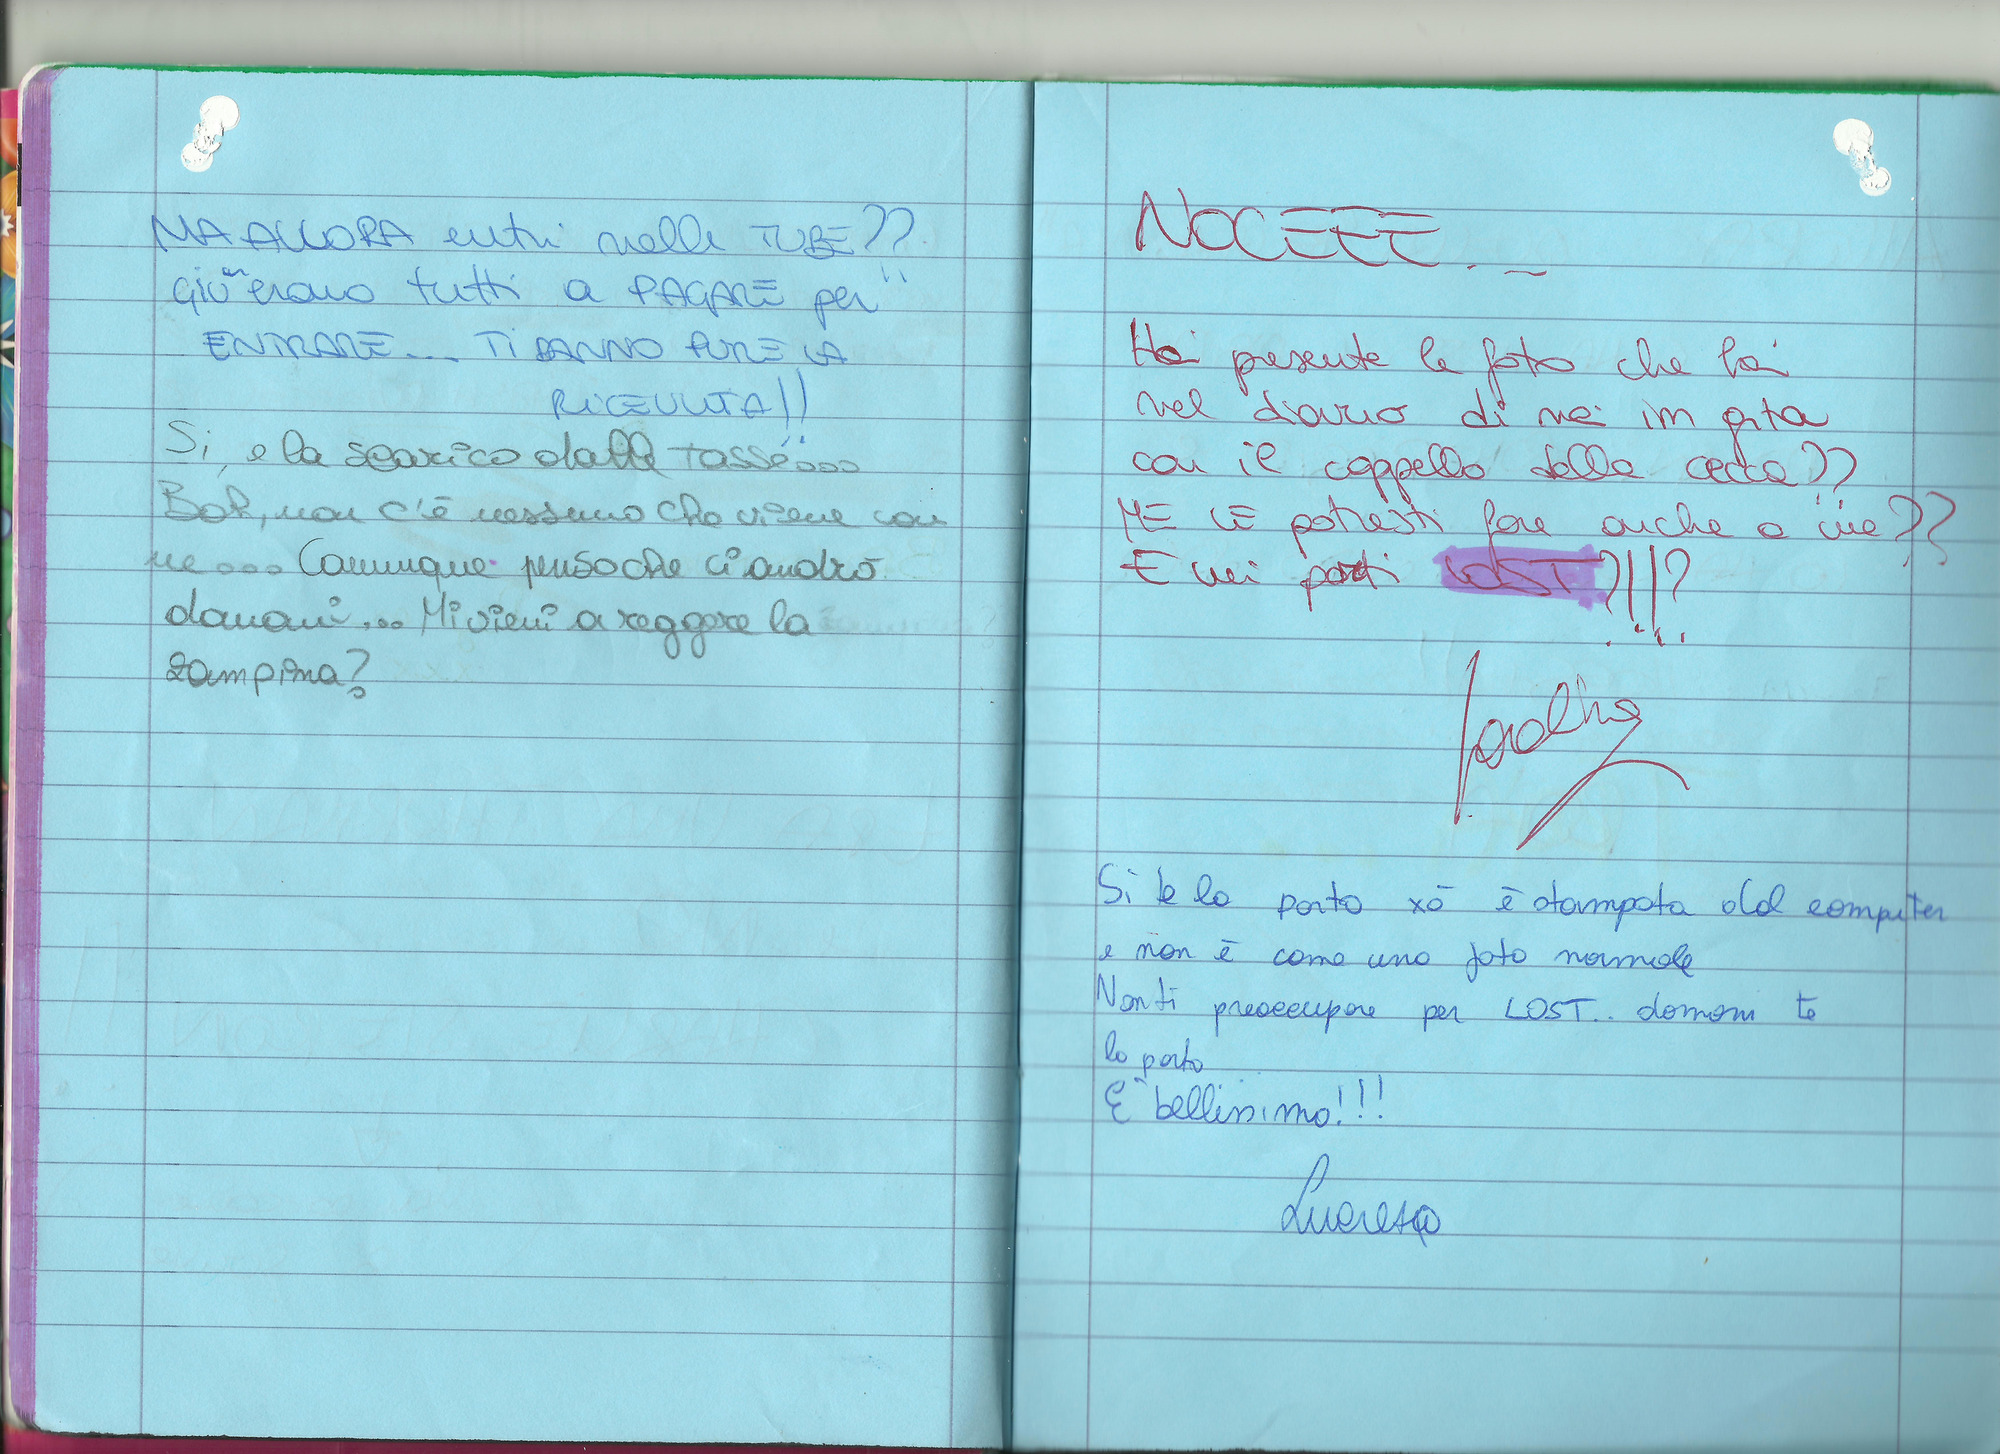 MA ALLORA entri nelle TUBE??
giù erano tutti a PAGARE per
ENTRARE... TI DANNO PURE LA
RICEVUTA!!
Si, e la scarico dalle tasse...
Boh, non c'è nessuno che viene con
me... Comunque penso che ci andrò
domani... Mi vieni a reggere la
zampina?
NOCEEEE...
Hai presente le foto che hai
nel diario di noi in gita
con il cappello della cecca??
ME LE potresti fare anche a me??
E mi porti LOST?!!!?
Si te la porto xò è stampata dal computer
e non è come una foto normale
Non ti preoccupare per LOST.. domani te
lo porto
È bellissimo!!!
Lucrezia